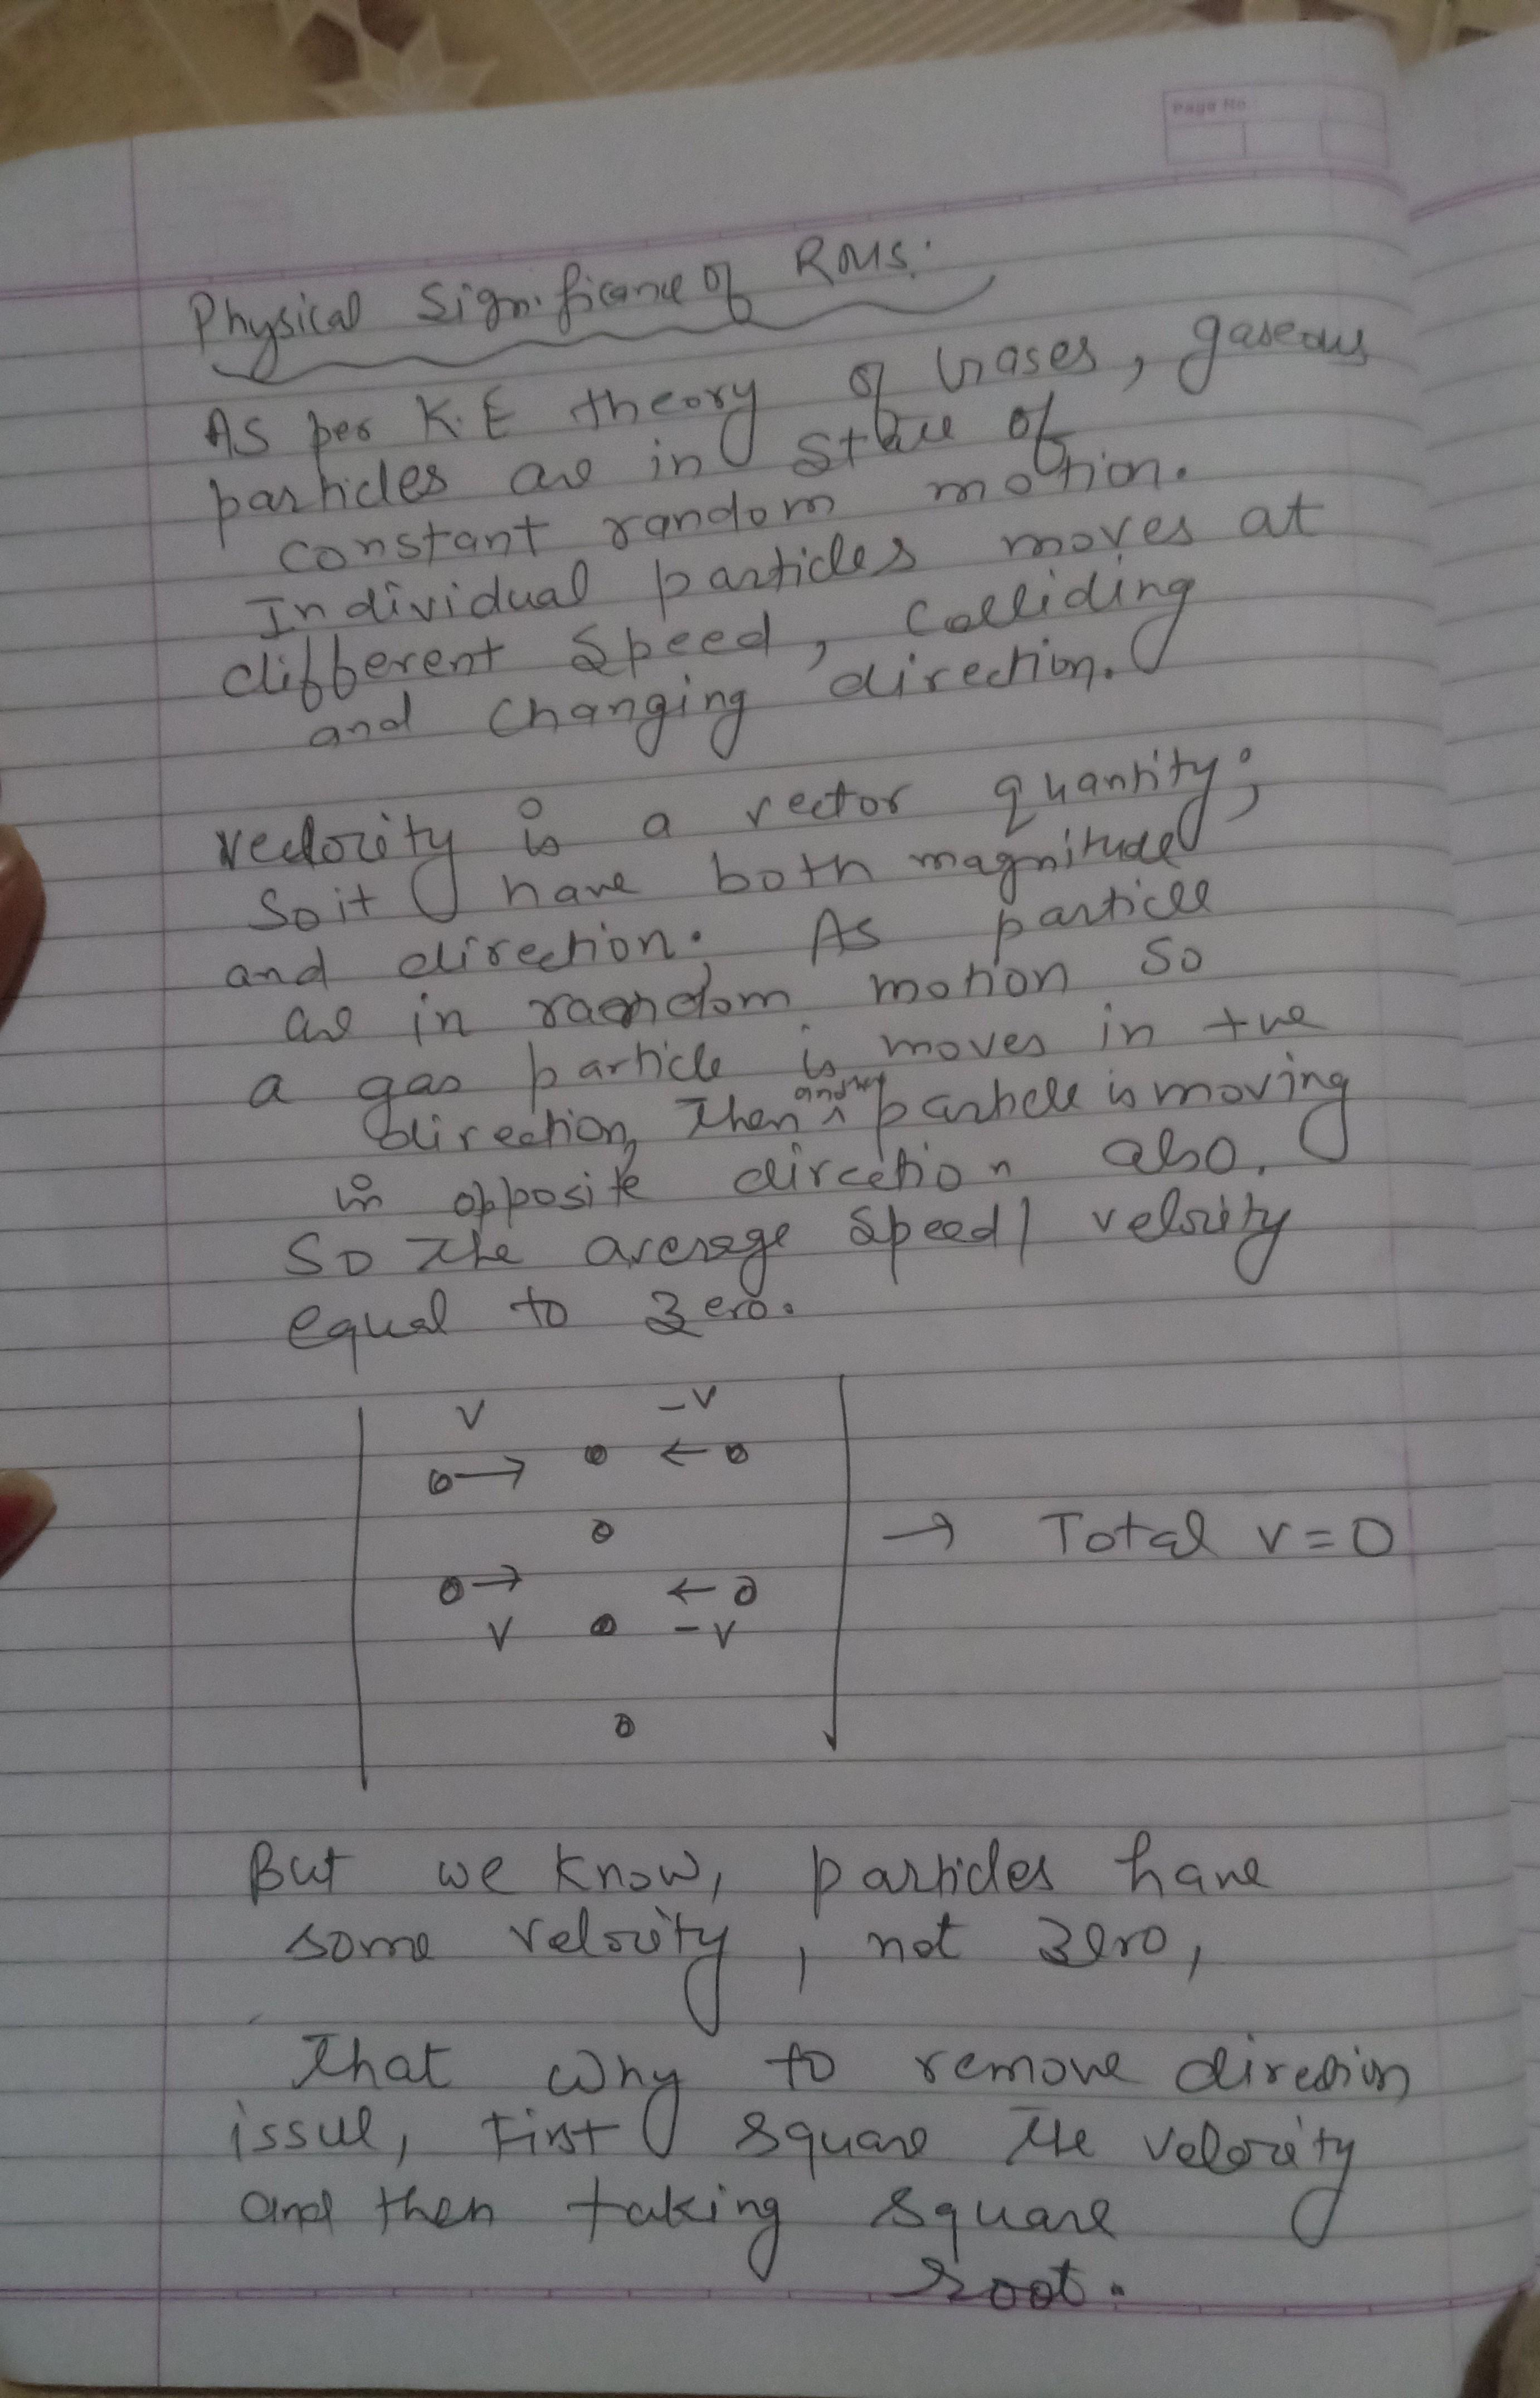 Page No.
Physical Significance of RMS.
As per K.E theory of Gases, gaseous
particles are in state of
constant random motion.
Individual particles moves at
different speed, colliding
and changing direction.
Velocity is a vector quantity;
So it have both magnitude
and direction. As particle
are in random motion so
a gas particle is moves in +ve
direction, then another particle is moving
in opposite direction also.
So the average speed/ velocity
equal to zero.
V -V
→ Total v=0
V -V
But we know, particles have
some velocity, not zero,
That why to remove direction
issue, First square the velocity
and then taking square
root.